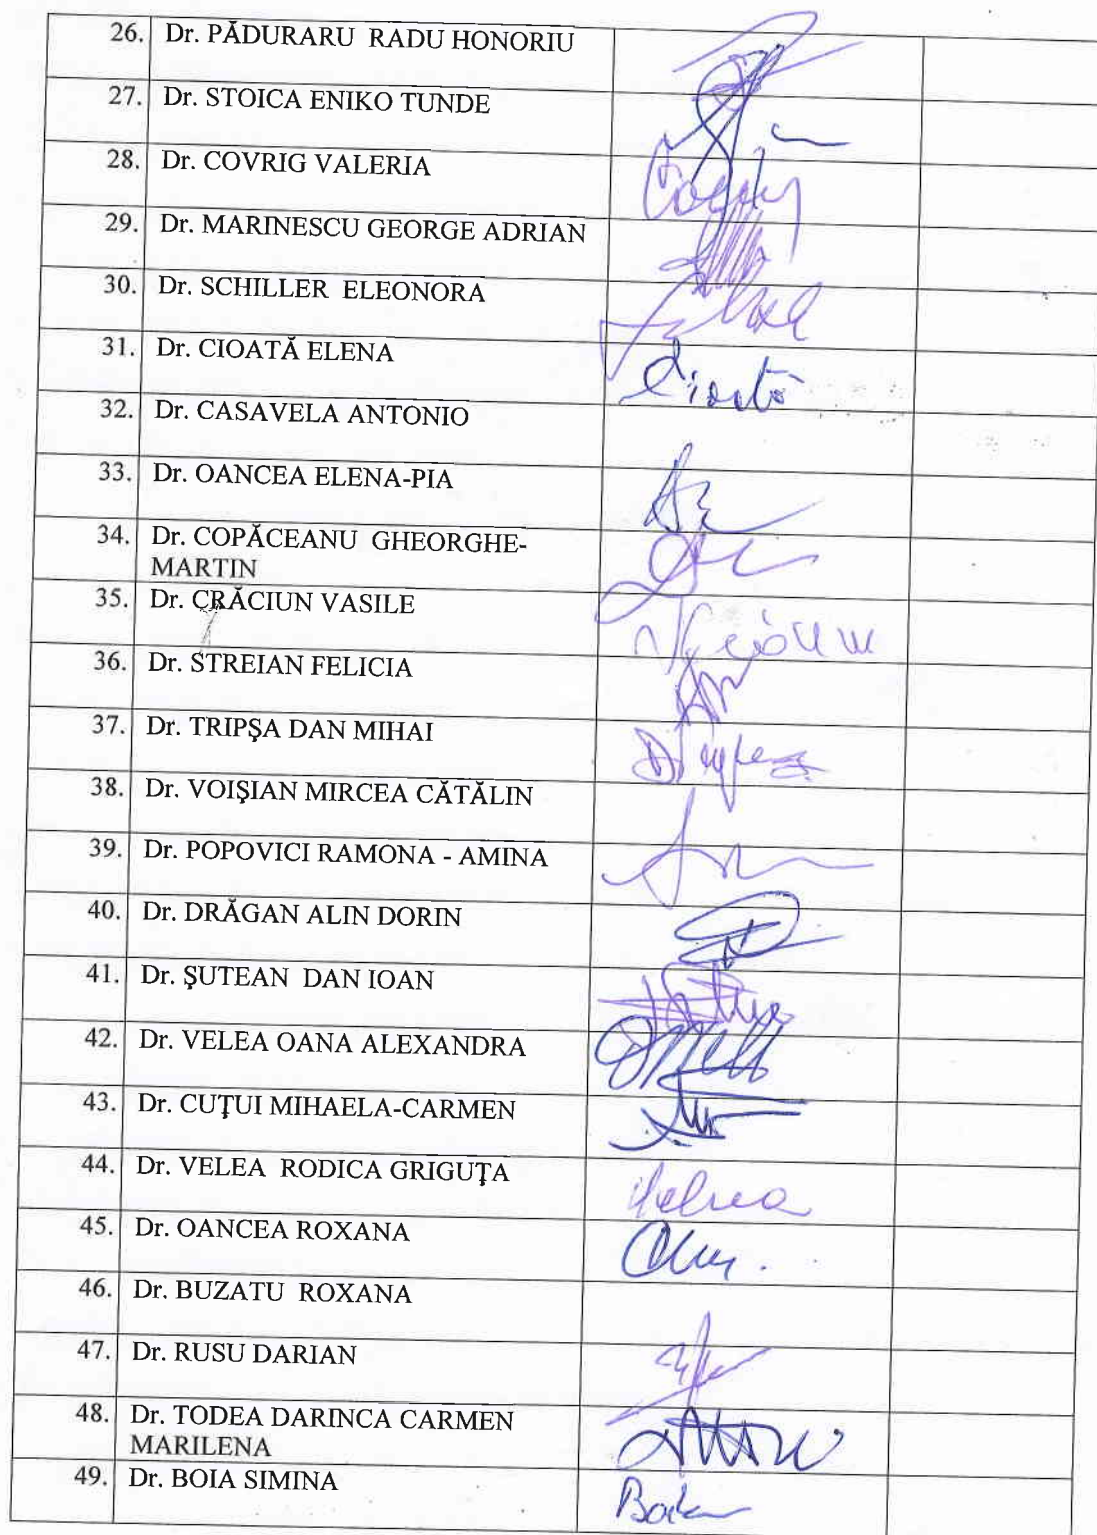 26. Dr. PĂDURARU RADU HONORIU
27. Dr. STOICA ENIKO TUNDE
28. Dr. COVRIG VALERIA
29. Dr. MARINESCU GEORGE ADRIAN
30. Dr. SCHILLER ELEONORA
31. Dr. CIOATĂ ELENA
Cioată
32. Dr. CASAVELA ANTONIO
33. Dr. OANCEA ELENA-PIA
34. Dr. COPĂCEANU GHEORGHE-
MARTIN
35. Dr. CRĂCIUN VASILE
36. Dr. STREIAN FELICIA
37. Dr. TRIPŞA DAN MIHAI
38. Dr. VOIŞIAN MIRCEA CĂTĂLIN
39. Dr. POPOVICI RAMONA - AMINA
40. Dr. DRĂGAN ALIN DORIN
41. Dr. ŞUTEAN DAN IOAN
42. Dr. VELEA OANA ALEXANDRA
43. Dr. CUŢUI MIHAELA-CARMEN
44. Dr. VELEA RODICA GRIGUŢA
45. Dr. OANCEA ROXANA
46. Dr. BUZATU ROXANA
47. Dr. RUSU DARIAN
48. Dr. TODEA DARINCA CARMEN
MARILENA
49. Dr. BOIA SIMINA